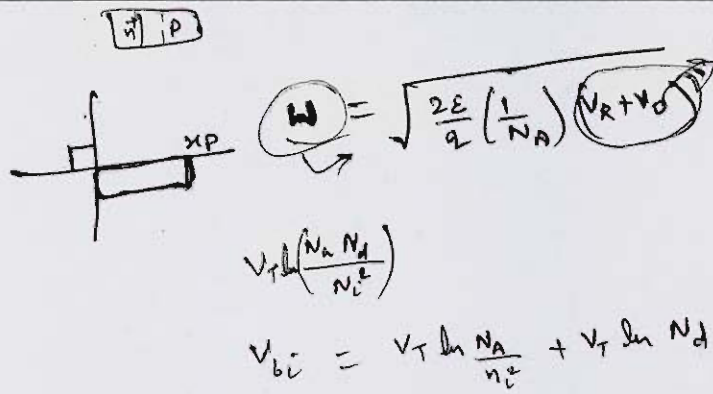 n+ P
xp
W = √(2ε/q (1/N_A) (V_R + V_0))
V_T ln(N_a N_d / N_i²)
V_bi = V_T ln N_A/n_i² + V_T ln N_d